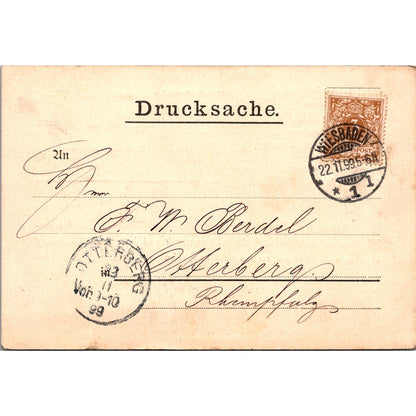 Drucksache.
WIESBADEN
22.11.99.5-6N
* 1 1
An
Herrn
F. W. Berdel
Otterberg.
Rheinpfalz
OTTERBERG
23
11
Vor. 9-10
99